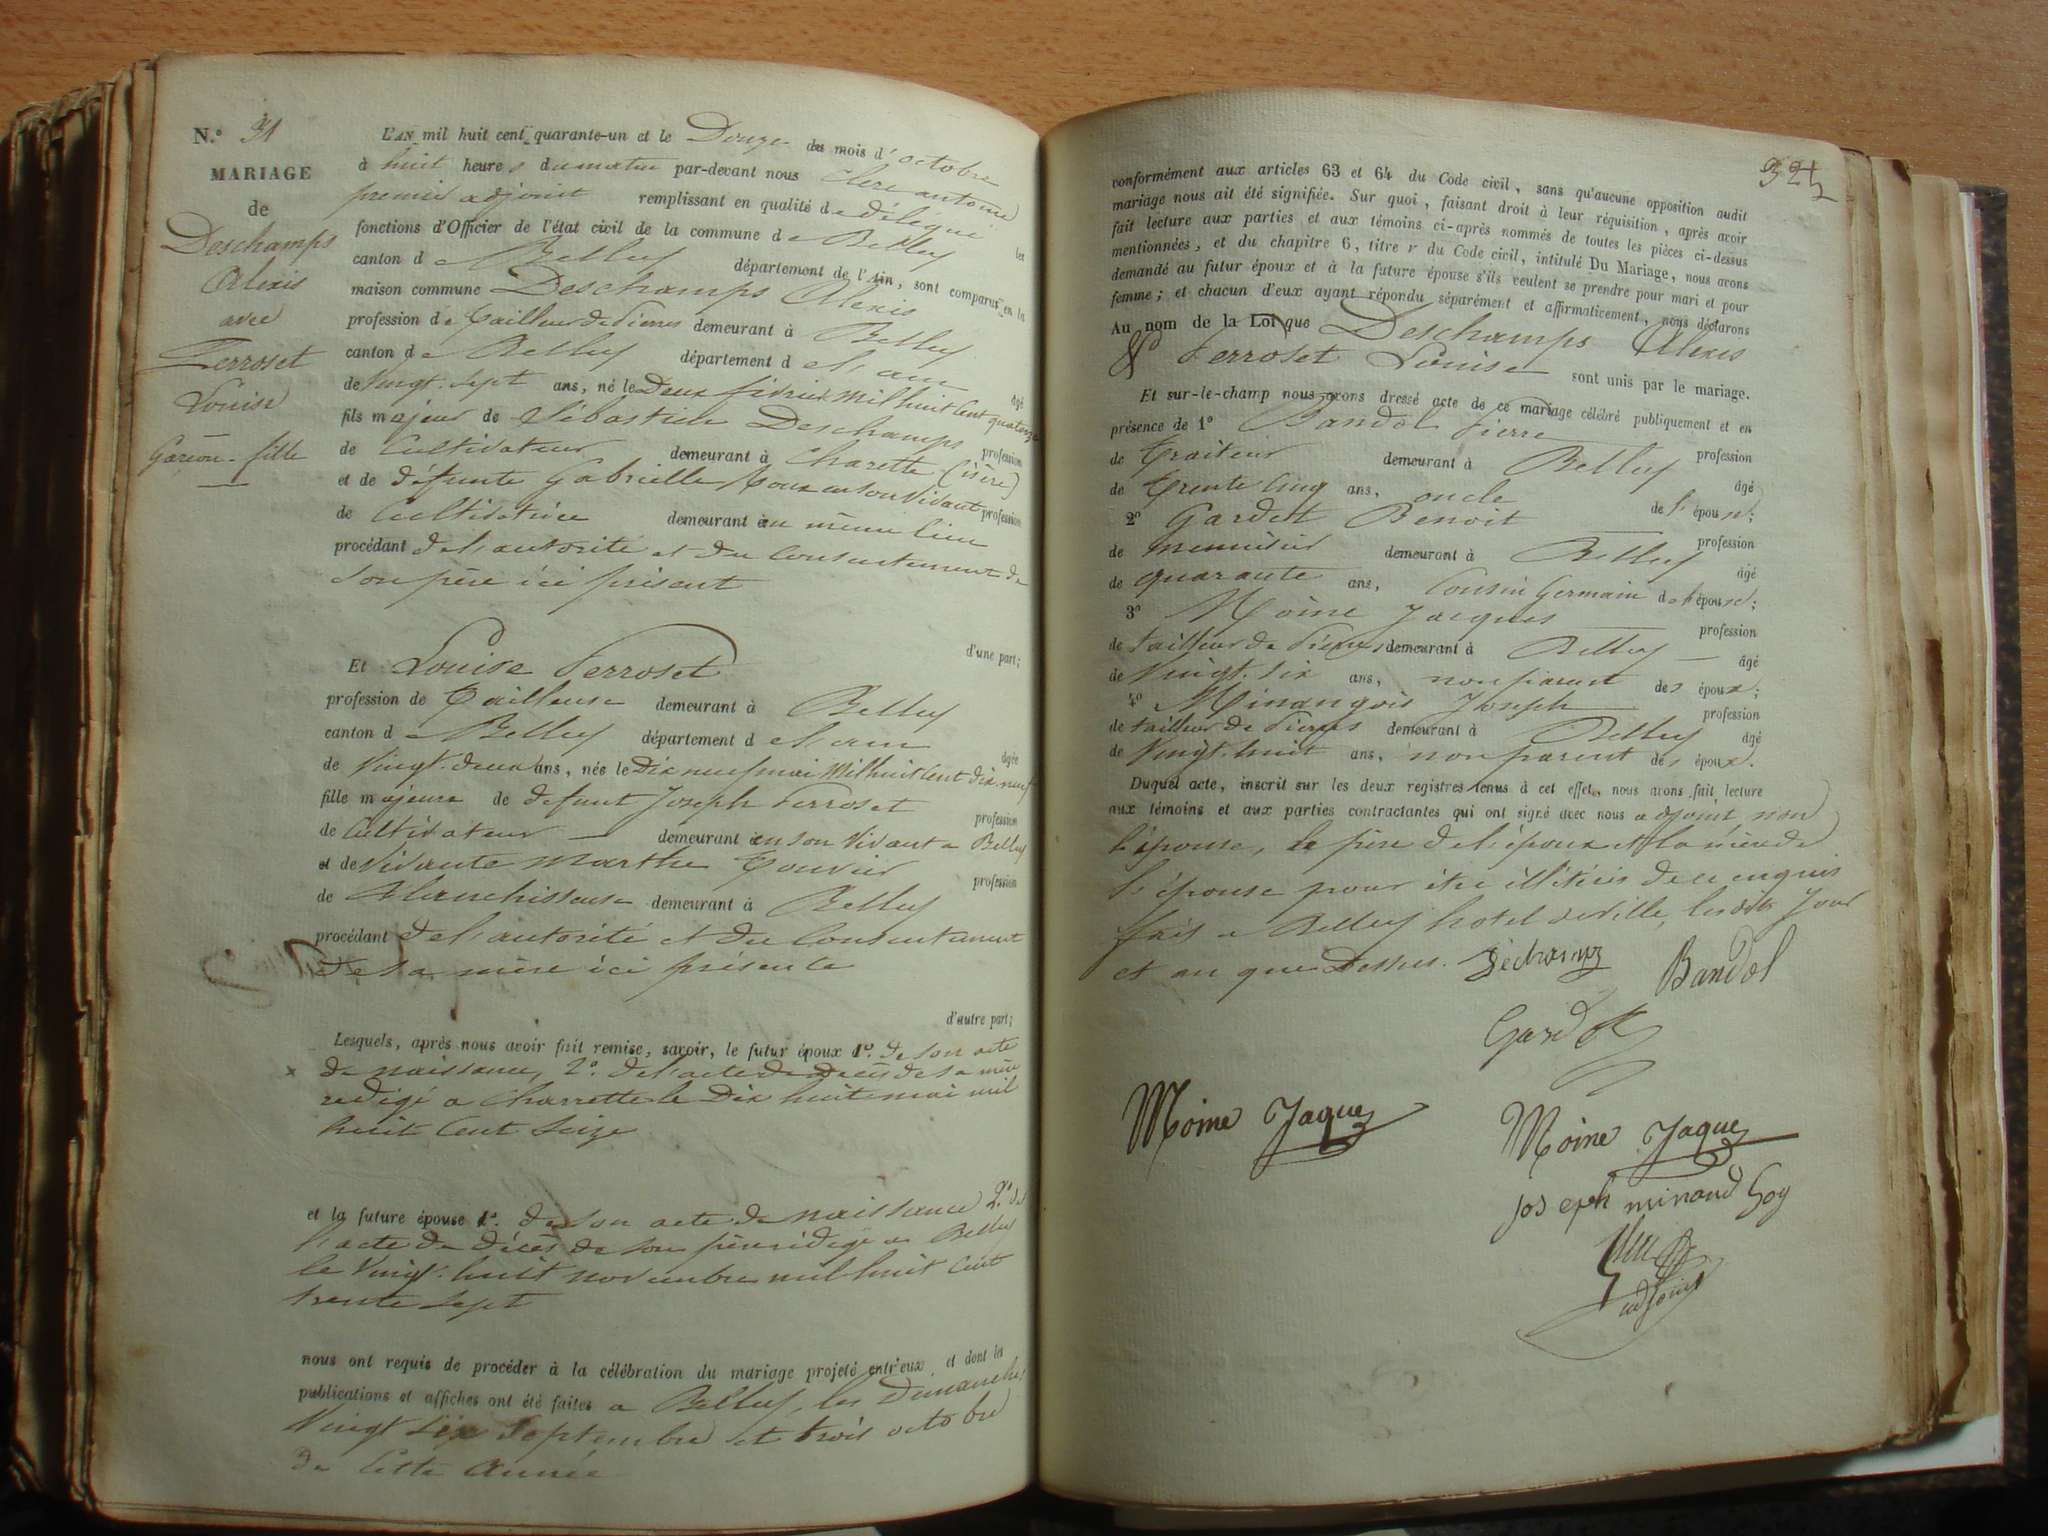 N.º 31
MARIAGE
de
Deschamps
Alexis
avec
Ferroset
Louise
Garçon - fille
L'AN mil huit cent quarante-un et le Douze des mois d'octobre
à huit heures du matin par-devant nous Clerc antoine
premier adjoint remplissant en qualité de délégué les
fonctions d'Officier de l'état civil de la commune de Belley
canton de Belley département de l'Ain, sont comparus en la
maison commune Deschamps Alexis
profession de tailleur de Pierres demeurant à Belley
canton de Belley département de l'ain âgé
de Vingt-sept ans, né le Deux février Mil huit Cent quatorze
fils majeur de Sébastien Deschamps profession
de Cultivateur demeurant à Charette (isère)
et de défunte Gabrielle en son Vivant profession
de Cultivatrice demeurant au même lieu
procédant de l'autorité et du Consentement de
son père ici présent
d'une part;
Et Louise Ferroset
profession de Tailleuse demeurant à Belley
canton de Belley département de l'ain âgée
de Vingt-deux ans, née le Dix neuf mai Mil huit Cent dix neuf
fille majeure de défunt Joseph Ferroset profession
de Cultivateur demeurant en son Vivant a Belley
et de Vivante Marthe Bouvier profession
de Blanchisseuse demeurant à Belley
procédant de l'autorité et du Consentement
de sa mère ici présente
d'autre part;
Lesquels, après nous avoir fait remise, savoir, le futur époux 1º. de son acte
de naissance, 2º. de l'acte de décès de sa mère
redigé a Charrette le Dix huit mai mil
huit Cent Seize
et la future épouse 1º. de son acte de naissance 2º. de
l'acte de décès de son père redigé a Belley
le Vingt-huit novembre mil huit Cent
trente Sept
nous ont requis de procéder à la célébration du mariage projeté entr'eux et dont les
publications et affiches ont été faites a Belley, les Dimanches
Vingt Six Septembre et trois octobre
de Cette Année
324
conformément aux articles 63 et 64 du Code civil, sans qu'aucune opposition audit
mariage nous ait été signifiée. Sur quoi, faisant droit à leur réquisition, après avoir
fait lecture aux parties et aux témoins ci-après nommés de toutes les pièces ci-dessus
mentionnées, et du chapitre 6, titre v du Code civil, intitulé Du Mariage, nous avons
demandé au futur époux et à la future épouse s'ils veulent se prendre pour mari et pour
femme; et chacun d'eux ayant répondu séparément et affirmativement, nous déclarons
Au nom de la Loi que Deschamps Alexis
Et Ferroset Louise sont unis par le mariage.
Et sur-le-champ nous avons dressé acte de ce mariage célébré publiquement et en
présence de 1º Bandol Pierre profession
de Traiteur demeurant à Belley âgé
de trente Cinq ans, oncle de l'épouse;
2º Gardet Benoit profession
de menuisier demeurant à Belley âgé
de quarante ans, Cousin Germain de l'épouse;
3º Moine Jacques profession
de tailleur de Pierres demeurant à Belley âgé
de Vingt-six ans, non parent des époux;
4º Minangois Joseph profession
de tailleur de Pierres demeurant à Belley âgé
de Vingt-huit ans, non parent des époux.
Duquel acte, inscrit sur les deux registres tenus à cet effet, nous avons fait lecture
aux témoins et aux parties contractantes qui ont signé avec nous adjoint, non
l'épouse, le père de l'époux et la mère de
l'épouse pour être illétérés de ce enquis
fait a Belley hotel de ville, lesdits Jour
et an que Dessus.
Bandol
Gardet
Moine Jaque
Moine Jaque
Joseph
adjoint